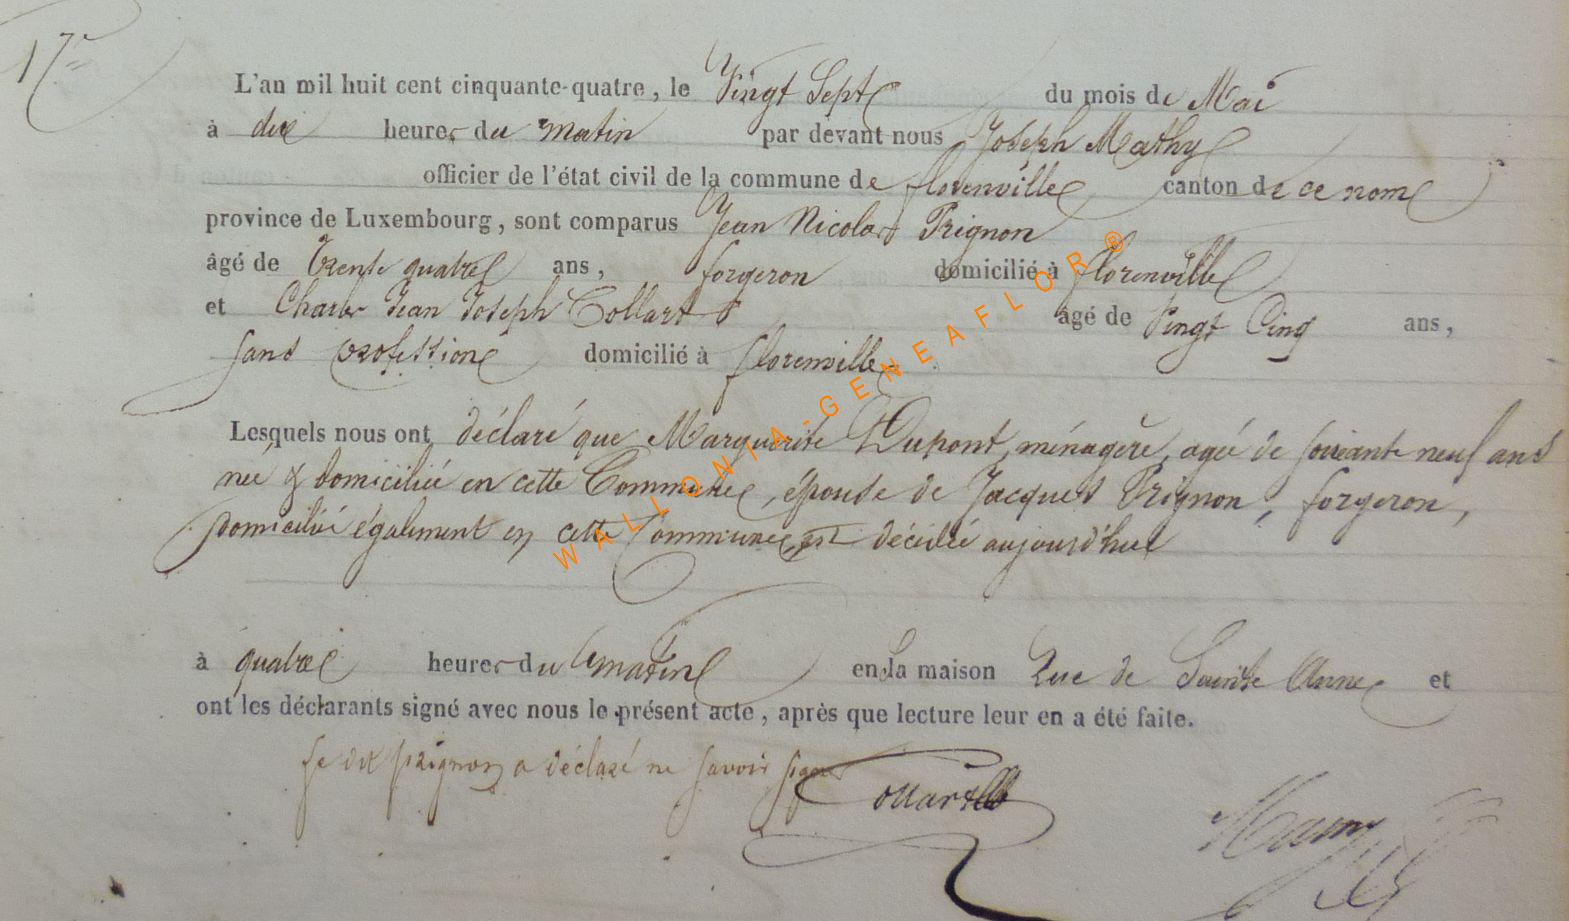 17e
L'an mil huit cent cinquante-quatre, le Vingt Sept du mois de Mai
à dix heures du matin par devant nous Joseph Mathy
officier de l'état civil de la commune de florenville canton de ce nom
province de Luxembourg, sont comparus Jean Nicolas Prignon
âgé de trente quatre ans, forgeron domicilié à florenville
et Charles Jean Joseph Collart âgé de Vingt Cinq ans,
sans profession domicilié à florenville
Lesquels nous ont déclaré que Marguerite Dupont, ménagère, agée de soixante neuf ans
née & domiciliée en cette Commune, épouse de Jacques Prignon, forgeron,
domicilié également en cette Commune, est décédée aujourd'hui
à quatre heures du matin en la maison Rue de Sainte Anne et
ont les déclarants signé avec nous le présent acte, après que lecture leur en a été faite.
Le dit prignon a déclaré ne savoir signer
Collart
Mathy
WALLONIA-GENEAFLOR®